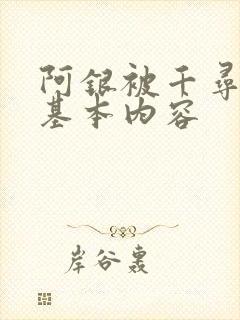 阿银被千寻
基本内容
岸谷轰